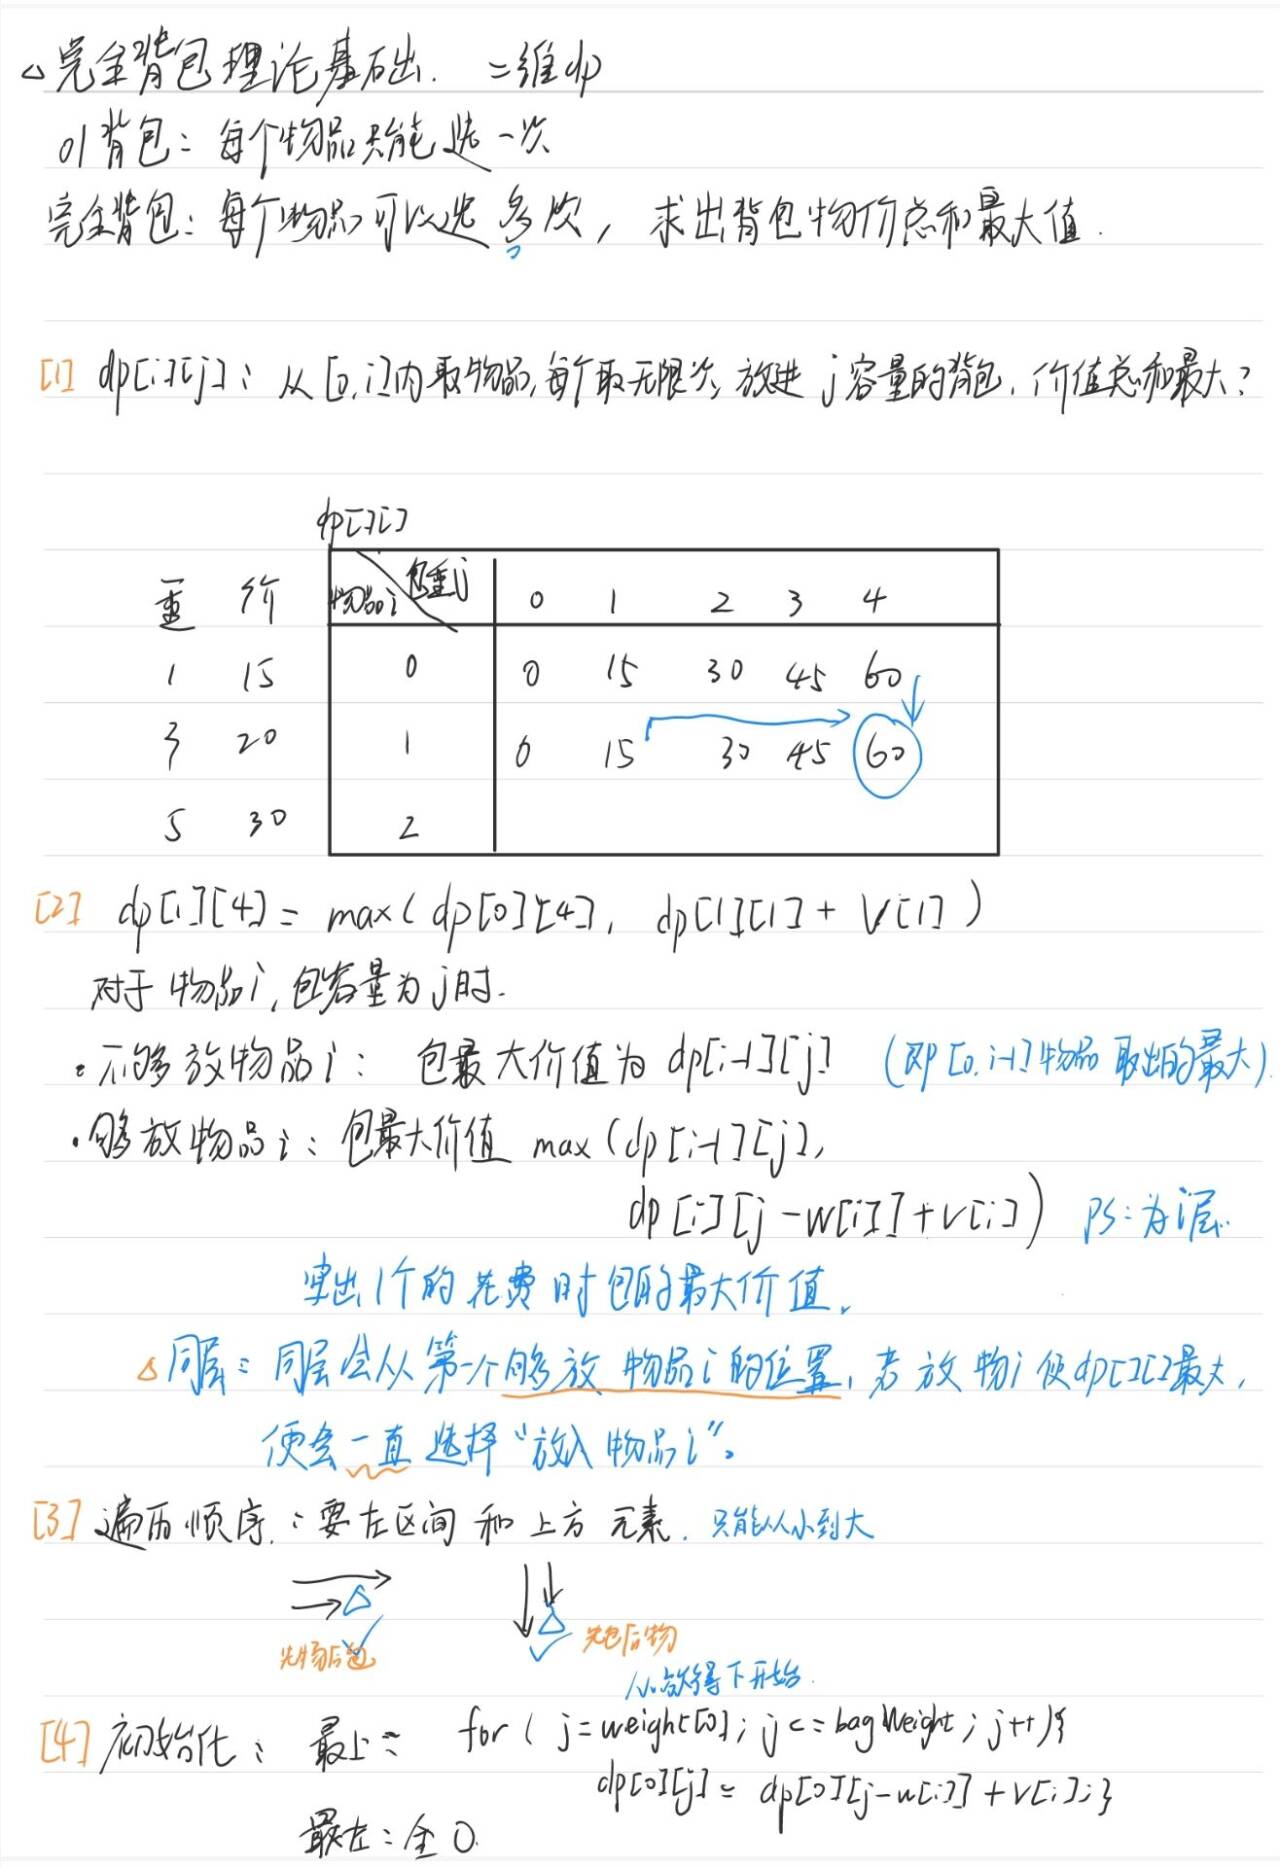 △完全背包理论基础. 二维dp
01背包：每个物品只能选一次
完全背包：每个物品可以选多次，求出背包物价总和最大值.
[1] dp[i][j]：从[0,i]内取物品,每个取无限次,放进j容量的背包,价值总和最大?
dp[][]
重 价 物品i 包重j 0 1 2 3 4
1 15 0 0 15 30 45 60
3 20 1 0 15 30 45 60
5 30 2
[2] dp[1][4] = max( dp[0][4], dp[1][1] + V[1] )
对于物品i,包容量为j时.
·不够放物品i：包最大价值为dp[i-1][j] (即[0,i-1]物品取出的最大)
·够放物品i：包最大价值 max(dp[i-1][j],
dp[i][j-w[i]]+v[i]) PS:为i层.
空出1个的花费时包的最大价值.
△同层：同层会从第一个够放物品i的位置,若放物i使dp[][]最大,
便会一直选择“放入物品i”。
[3] 遍历顺序：要左区间和上方元素. 只能从小到大
先物后包 先包后物
从放得下开始.
[4] 初始化：最上： for ( j=weight[0]; j<=bagWeight; j++){
dp[0][j] = dp[0][j-w[i]]+v[i];}
最左：全0.